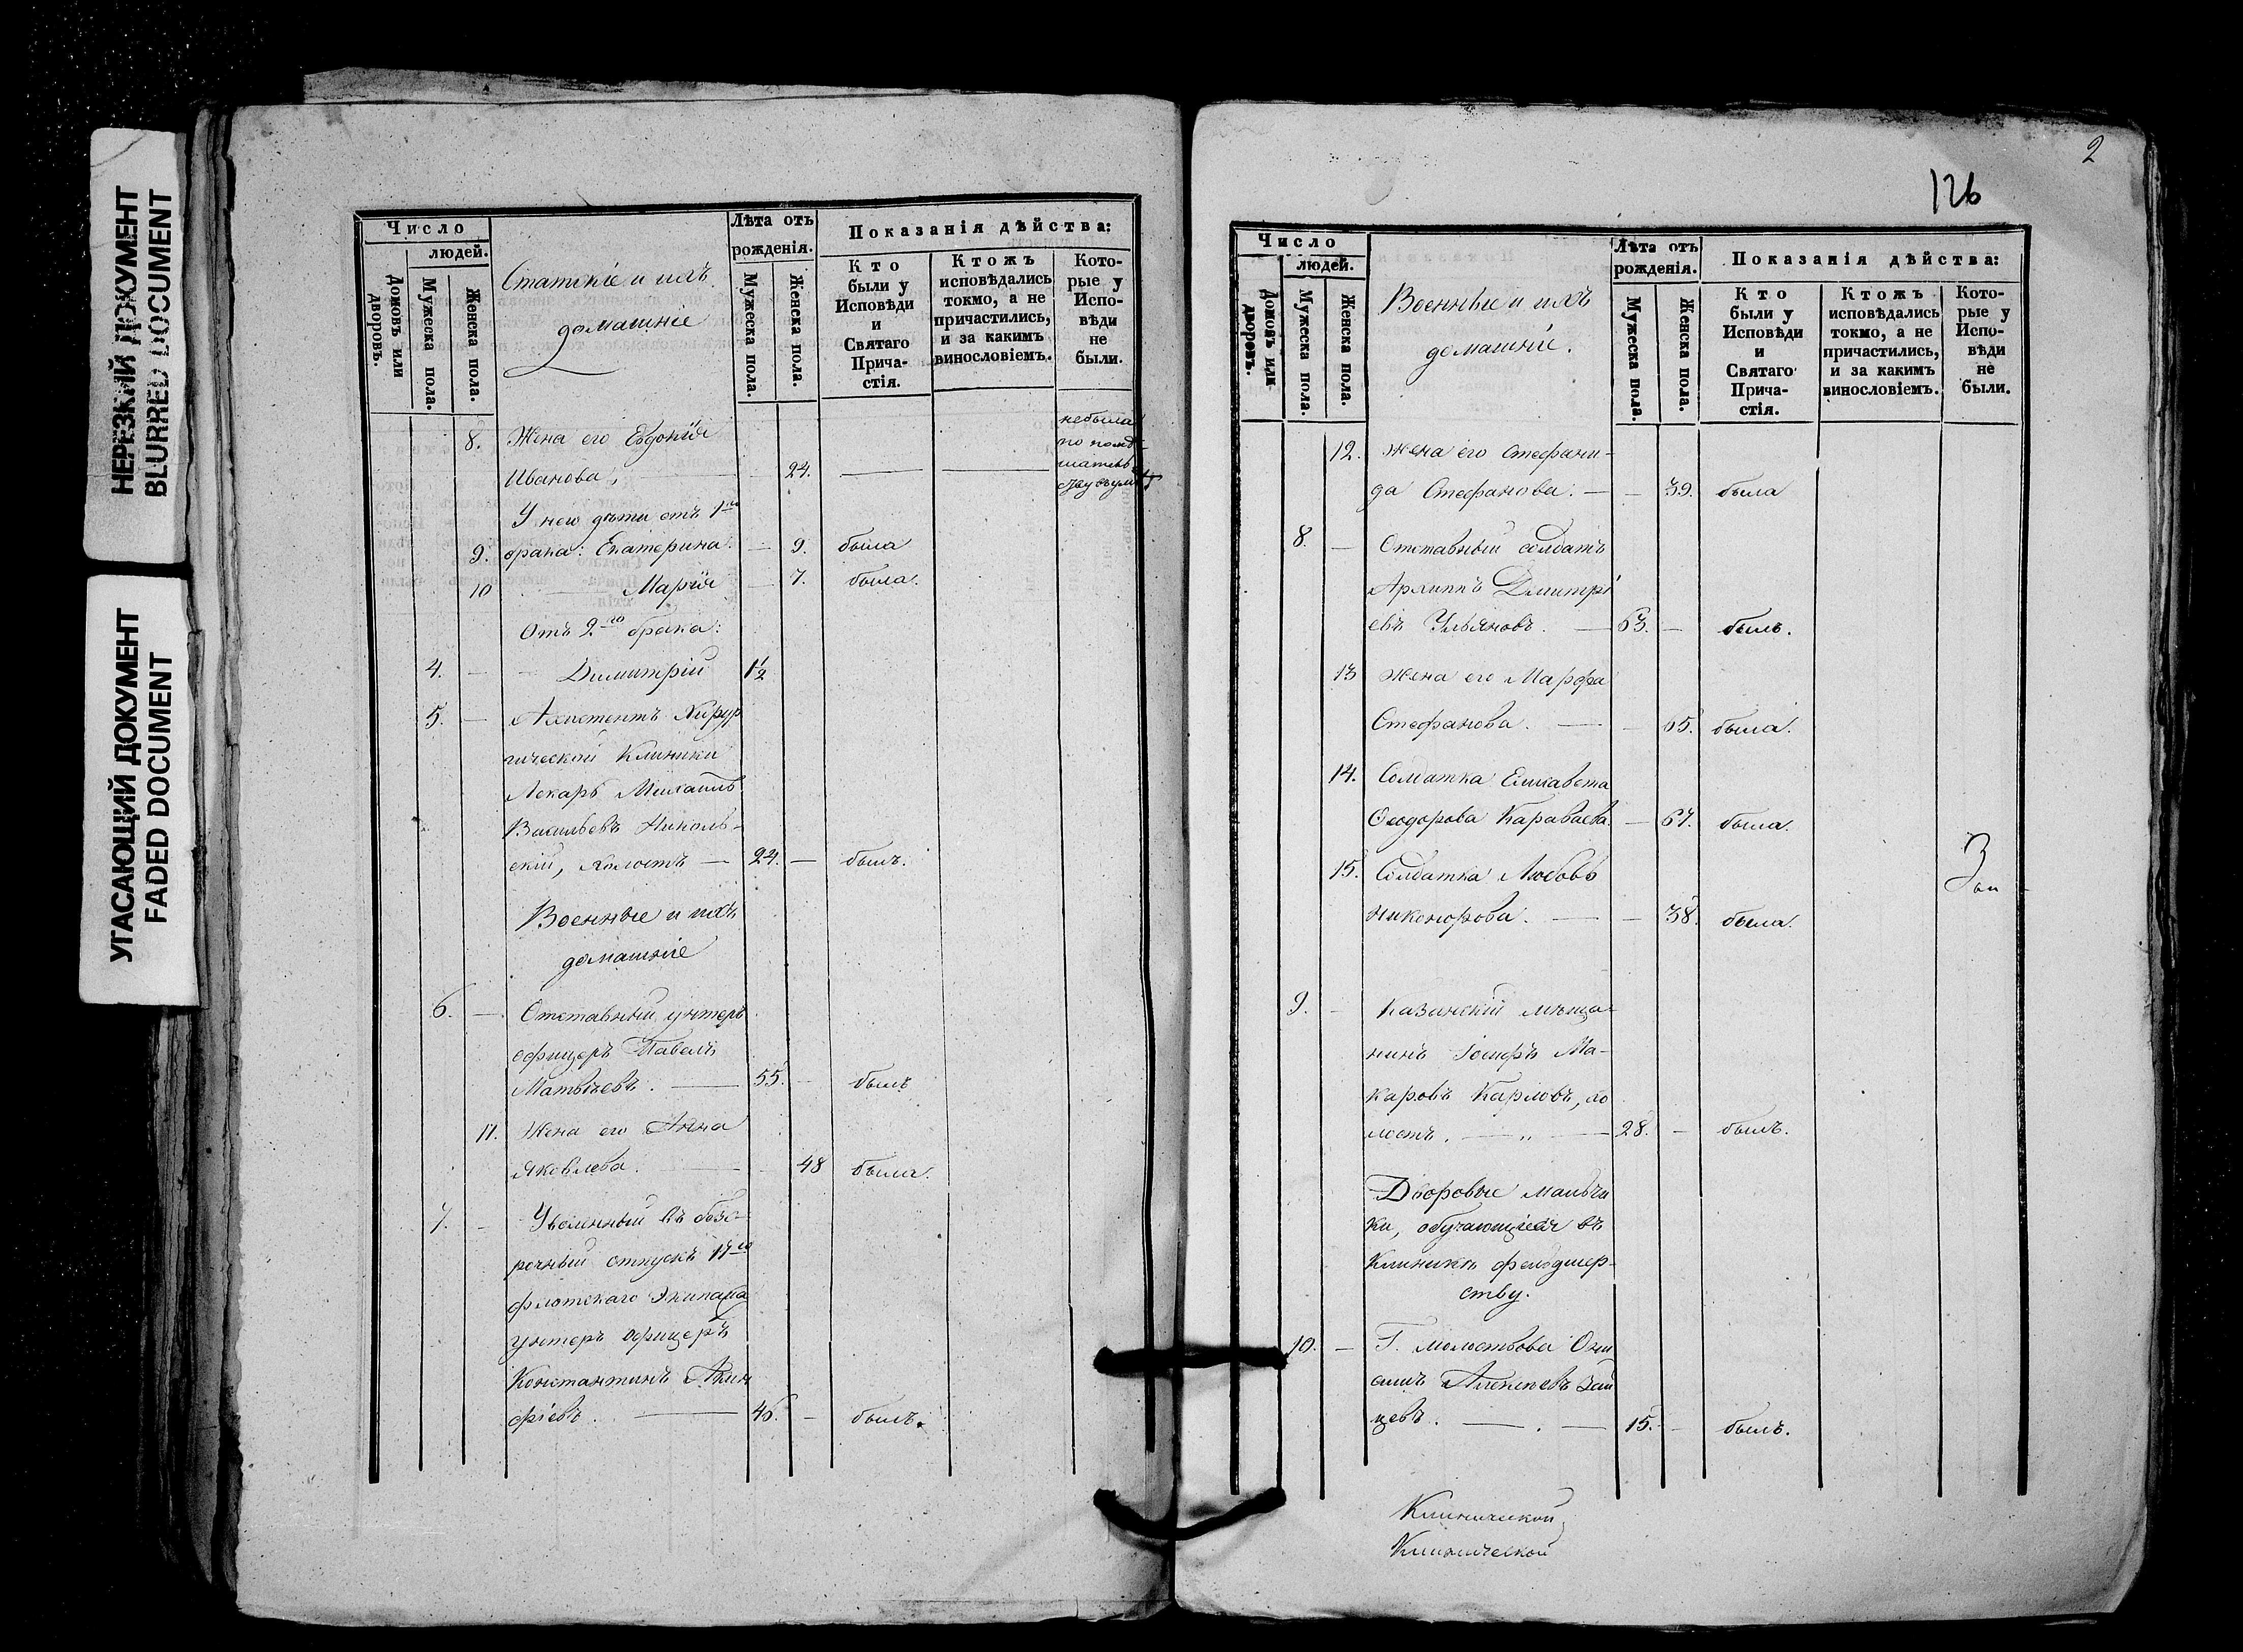 НЕРЕЗКИЙ ДОКУМЕНТ
BLURRED DOCUMENT
УГАСАЮЩИЙ ДОКУМЕНТ
FADED DOCUMENT
Число
людей.
Домовъ или дворовъ.
Мужеска пола.
Женска пола.
Статскіе и ихъ
домашніе
Лѣта отъ
рожденія.
Мужеска пола.
Женска пола.
Показанія дѣйства:
Кто
были у
Исповѣди
и
Святаго
Прича-
стія.
Ктожъ
исповѣдались
токмо, а не
причастились,
и за какимъ
винословіемъ.
Кото-
рые у
Испо-
вѣди
не
были.
8. Жена его Евдокія
Иванова, — 24. — —
не была
по
У него дѣти отъ 1го
9. брака: Екатерина. — 9. была
10 — Марія — 7. была.
Отъ 2го брака:
4. — — Димитрій 1½
5. — Ассистентъ Хирур
гической Клиники
Лекарь Михаилъ
Васильевъ Николь-
скій, холостъ — 24. — былъ.
Военные и ихъ
домашніе
6. — Отставный унтеръ
офицеръ Павелъ
Матвѣевъ. — 55. — былъ
11. Жена его Анна
Яковлева. — 48 была.
7. — Уволенный въ безс-
рочный отпускъ 17го
флотскаго Экипажа
унтеръ офицеръ
Константинъ
фіевъ. — 46. — былъ.
2
126
Число
людей.
Домовъ или дворовъ.
Мужеска пола.
Женска пола.
Военные и ихъ
домашніе.
Лѣта отъ
рожденія.
Мужеска пола.
Женска пола.
Показанія дѣйства:
Кто
были у
Исповѣди
и
Святаго
Прича-
стія.
Ктожъ
исповѣдались
токмо, а не
причастились,
и за какимъ
винословіемъ.
Кото-
рые у
Испо-
вѣди
не
были.
12. Жена его Стефани-
да Стефанова. — — 39. была
8. — Отставный солдатъ
Архиппъ Димитрі
евъ Ульяновъ. — 63. — былъ.
13 Жена его Марфа
Стефанова. — — 65. была.
14. Солдатка Елисавета
Ѳеодорова Караваева. — 67. была.
15. Солдатка Любовь
Никонорова. — — 38. была.
9. — Казанскій мѣща-
нинъ Іосифъ Ма-
каровъ Карловъ, хо
лостъ. — „ — 28. — былъ.
Дворовые мальчи
ки, обучающіеся въ
Клиникѣ фельдшер-
ству.
10. — Г. Молоствова Они
симъ Алексѣевъ Зай
цевъ. — . — 15. — былъ.
Клинической
Клинической